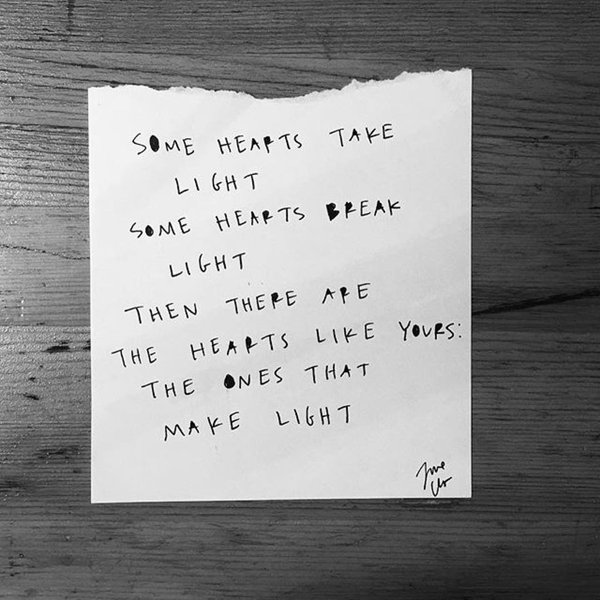 SOME HEARTS TAKE
LIGHT
SOME HEARTS BREAK
LIGHT
THEN THERE ARE
THE HEARTS LIKE YOURS:
THE ONES THAT
MAKE LIGHT